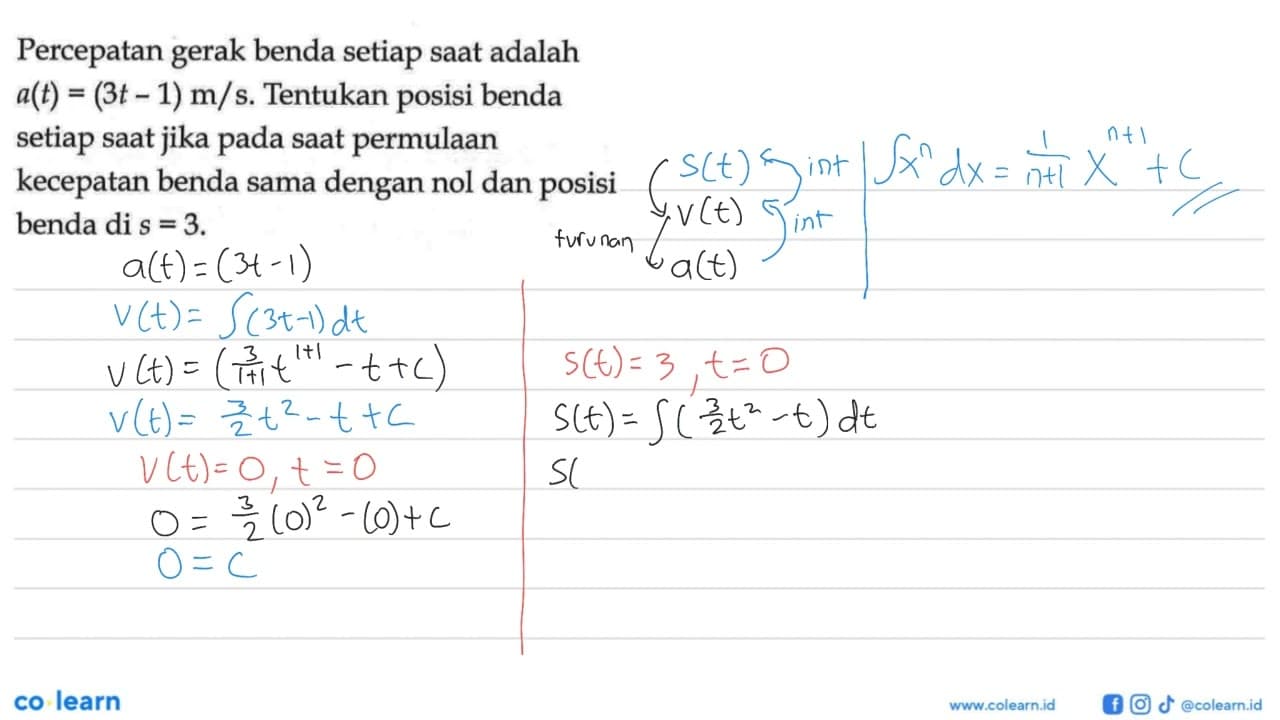 Percepatan gerak benda setiap saat adalah
a(t) = (3t – 1) m/s. Tentukan posisi benda
setiap saat jika pada saat permulaan
kecepatan benda sama dengan nol dan posisi
benda di s = 3.
s(t) int
v(t) int
turunan a(t)
∫xⁿ dx = 1/(n+1) X^(n+1) + C
a(t) = (3t - 1)
v(t) = ∫(3t-1) dt
v(t) = (3/(1+1) t^(1+1) - t + C)
v(t) = 3/2 t² - t + C
v(t) = 0, t = 0
0 = 3/2 (0)² - (0) + C
0 = C
s(t) = 3, t = 0
s(t) = ∫(3/2 t² - t) dt
s(
co learn
www.colearn.id
@colearn.id